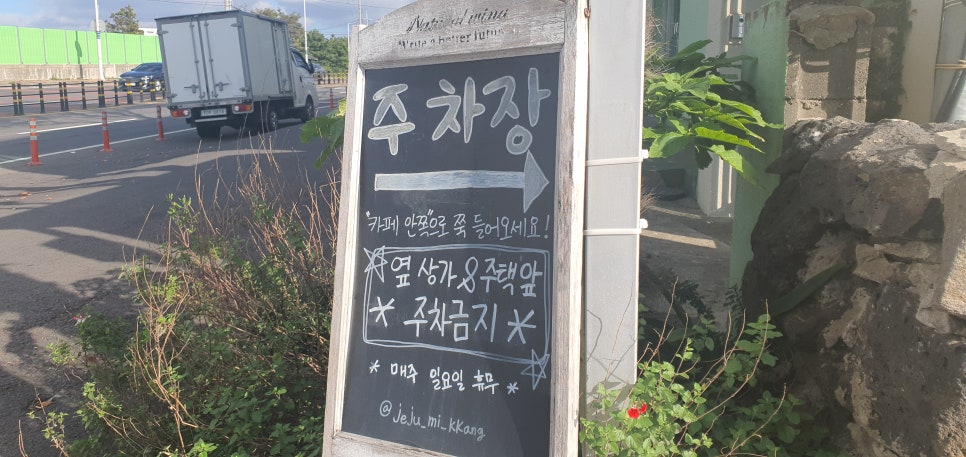 #Natural mind
Write a better future
주차장
"카페 안쪽"으로 쭉 들어오세요!
옆 상가 & 주택앞
* 주차금지 *
* 매주 일요일 휴무 *
@jeju_mi_kkang